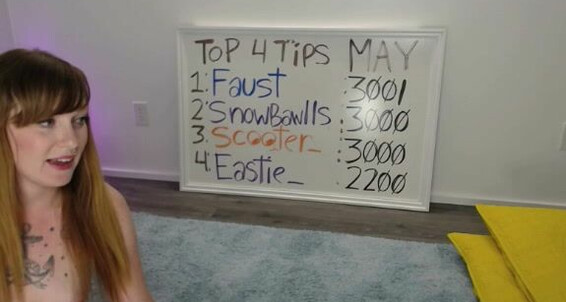 TOP 4 TiPS MAY
1. Faust : 3001
2. SnowBawlls : 3000
3. Scooter_ : 3000
4. Eastie_ : 2200